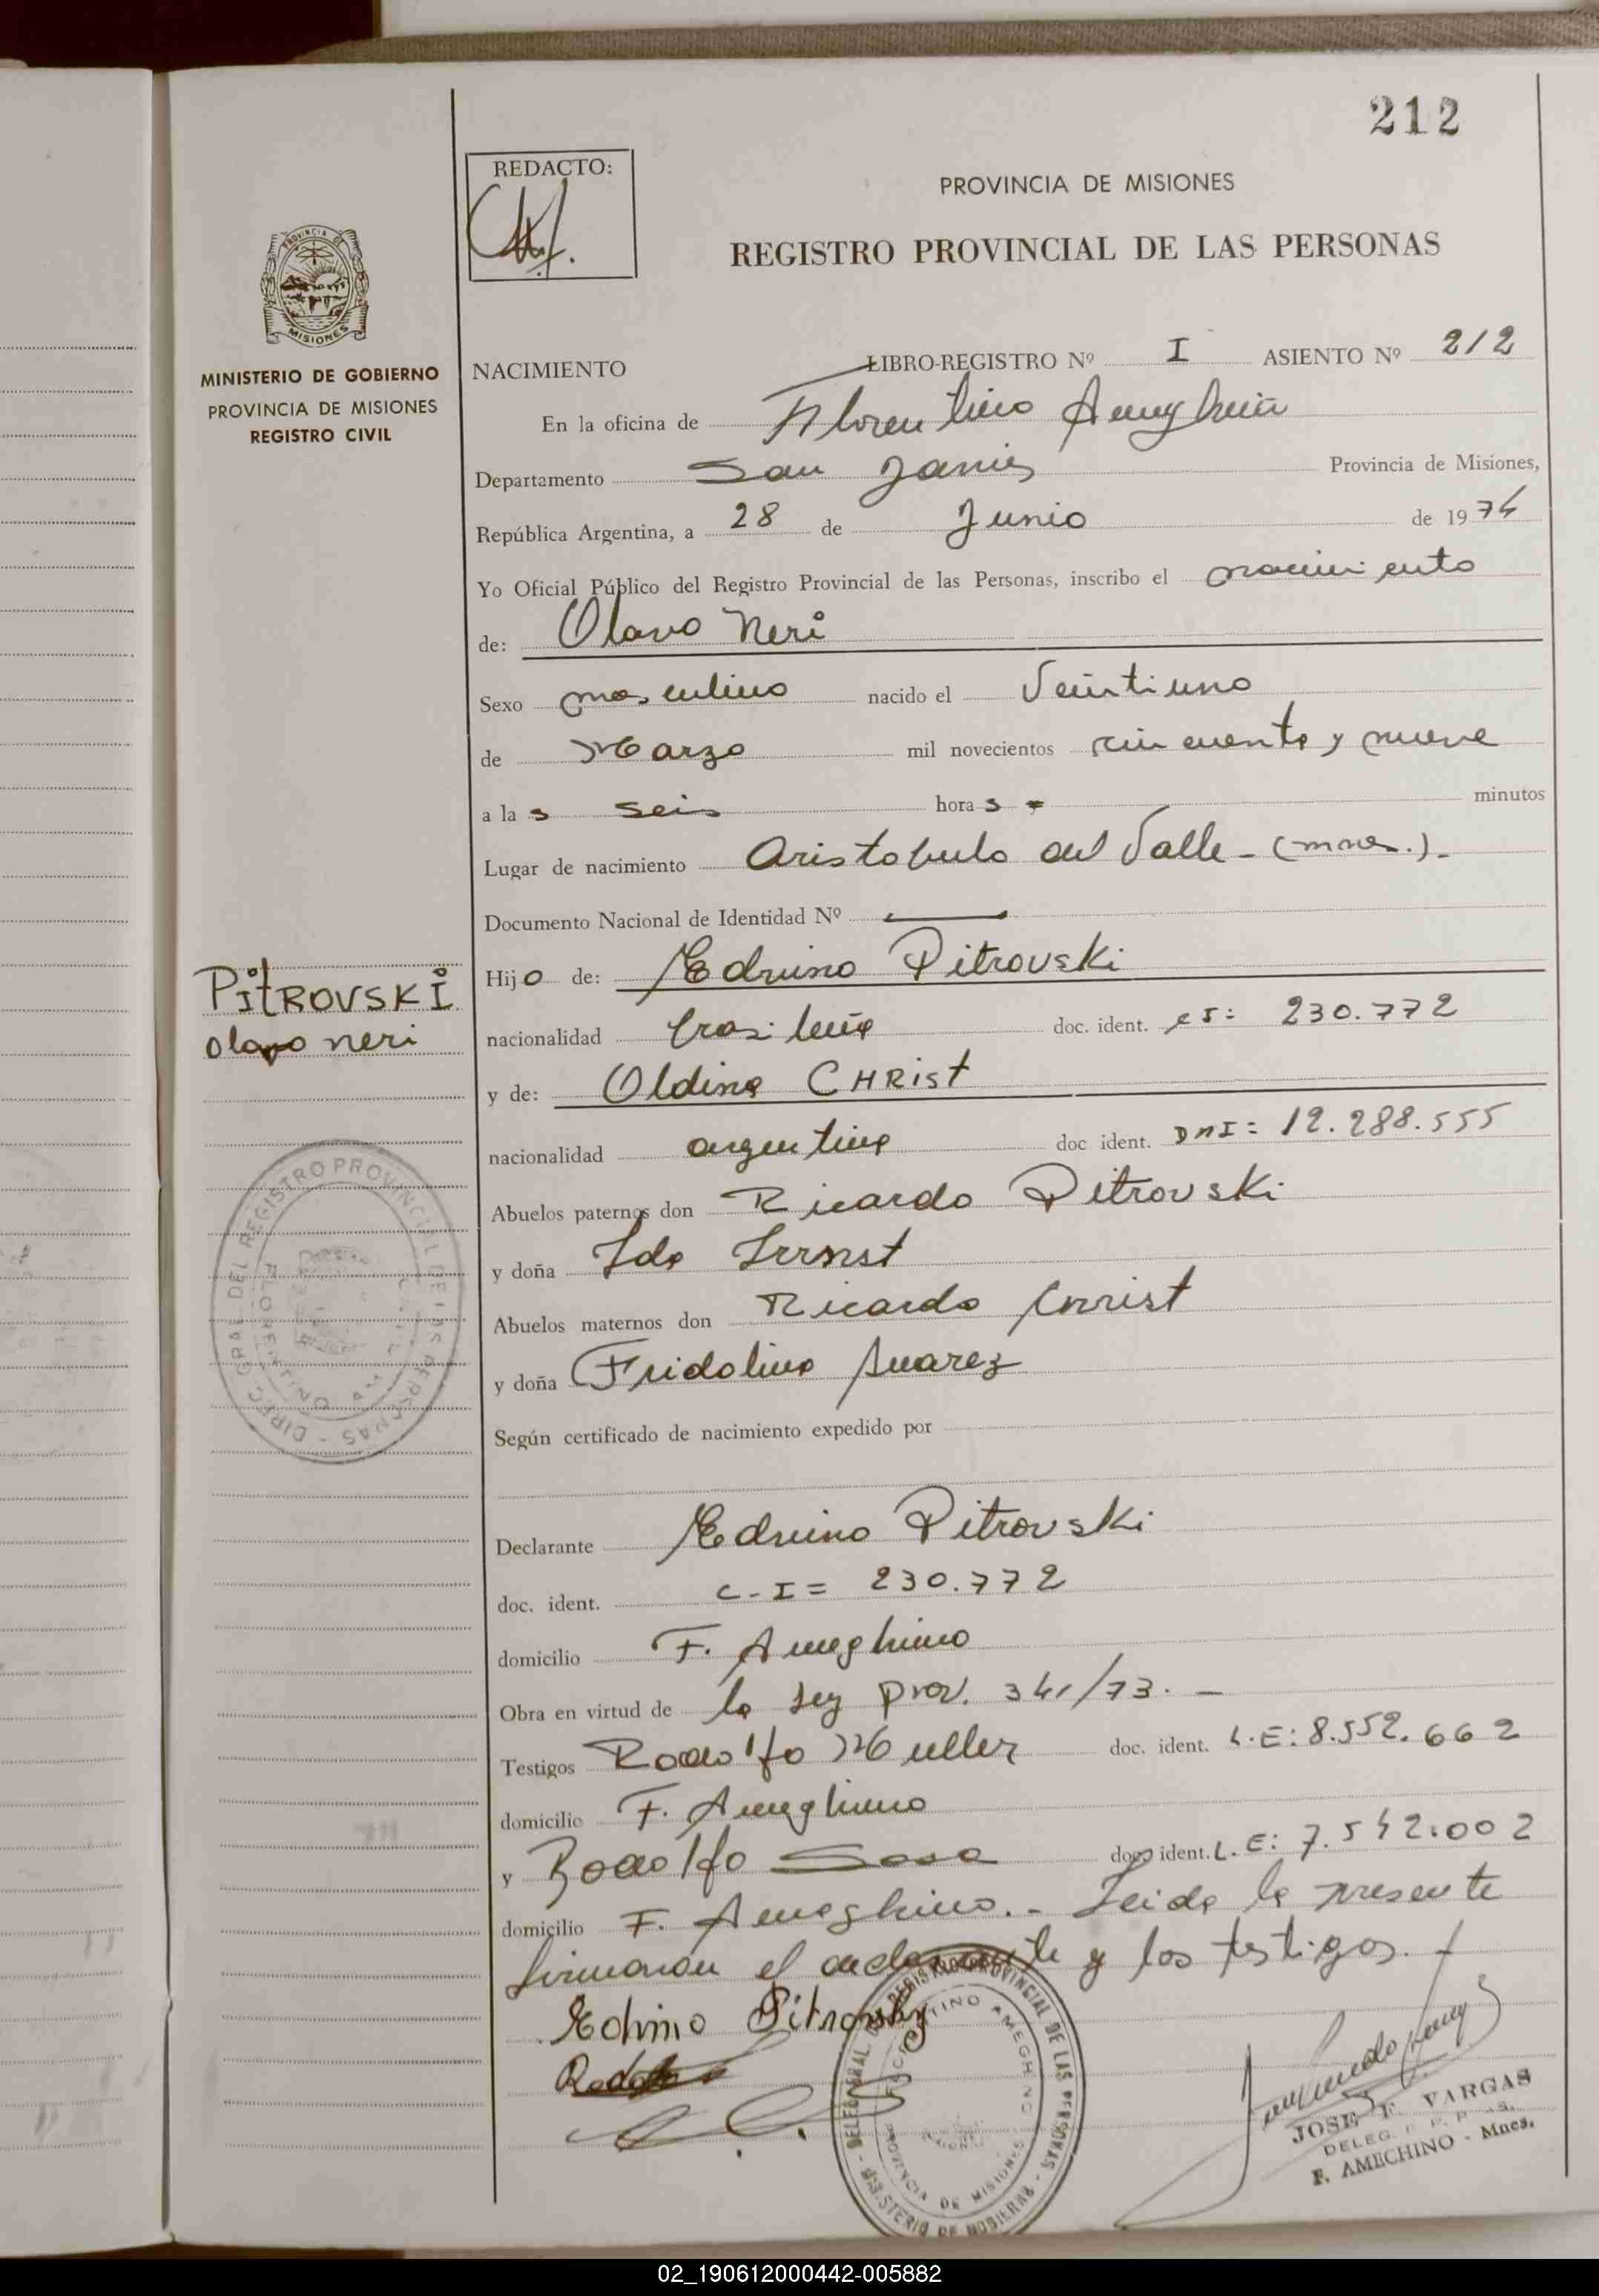 212
REDACTO:
PROVINCIA DE MISIONES
REGISTRO PROVINCIAL DE LAS PERSONAS
MINISTERIO DE GOBIERNO
PROVINCIA DE MISIONES
REGISTRO CIVIL
NACIMIENTO LIBRO-REGISTRO Nº I ASIENTO Nº 212
En la oficina de Florentino Ameghino
Departamento San Javier Provincia de Misiones,
República Argentina, a 28 de Junio de 1974
Yo Oficial Público del Registro Provincial de las Personas, inscribo el nacimiento
de: Olavo Neri
Sexo masculino nacido el Veintiuno
de Marzo mil novecientos cincuenta y nueve
a las seis horas minutos
Lugar de nacimiento Aristobulo del Valle - (mnes.).-
Documento Nacional de Identidad Nº
Hijo de: Edvino Pitrovski
PitROVSKi
olavo neri
nacionalidad brasileña doc. ident. 230.772
y de: Oldina CHRist
nacionalidad argentina doc ident. DNI: 12.288.555
Abuelos paternos don Ricardo Pitrovski
y doña Ida
Abuelos maternos don Ricardo Christ
y doña Fridolina Suarez
Según certificado de nacimiento expedido por
Declarante Edvino Pitrovski
doc. ident. C-I= 230.772
domicilio F. Ameghino
Obra en virtud de la ley prov. 341/73. -
Testigos Rodolfo Muller doc. ident. L.E: 8.552.662
domicilio F. Ameghino
y Rodolfo Sosa doc ident. L.E: 7.542.002
domicilio F. Ameghino.- Leida la presente
firmaron el declarante y los testigos.
Edvino Pitrovsky
JOSE F. VARGAS
DELEG.
F. AMEGHINO - Mnes.
02_190612000442-005882